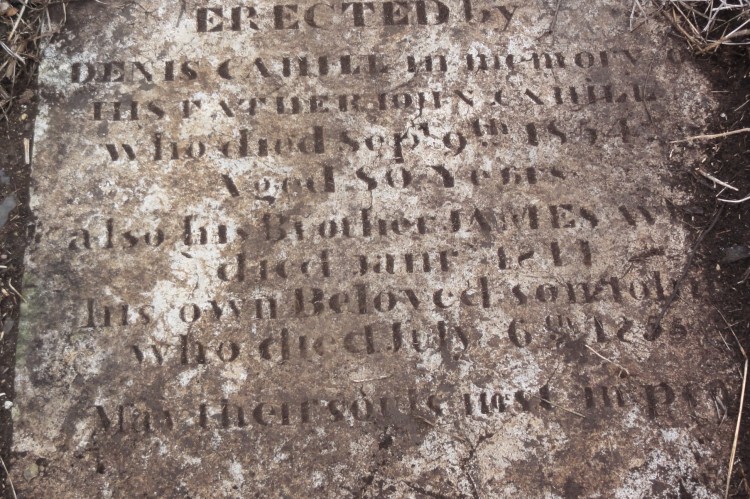 ERECTED by
DENIS CAHILL in memory o
HIS FATHER JOHN CAHILL
who died Sept 9th 1854
Aged 80 Years
also his Brother JAMES w
died Janry
his own Beloved son John
who died July 6th
May their souls rest in pea